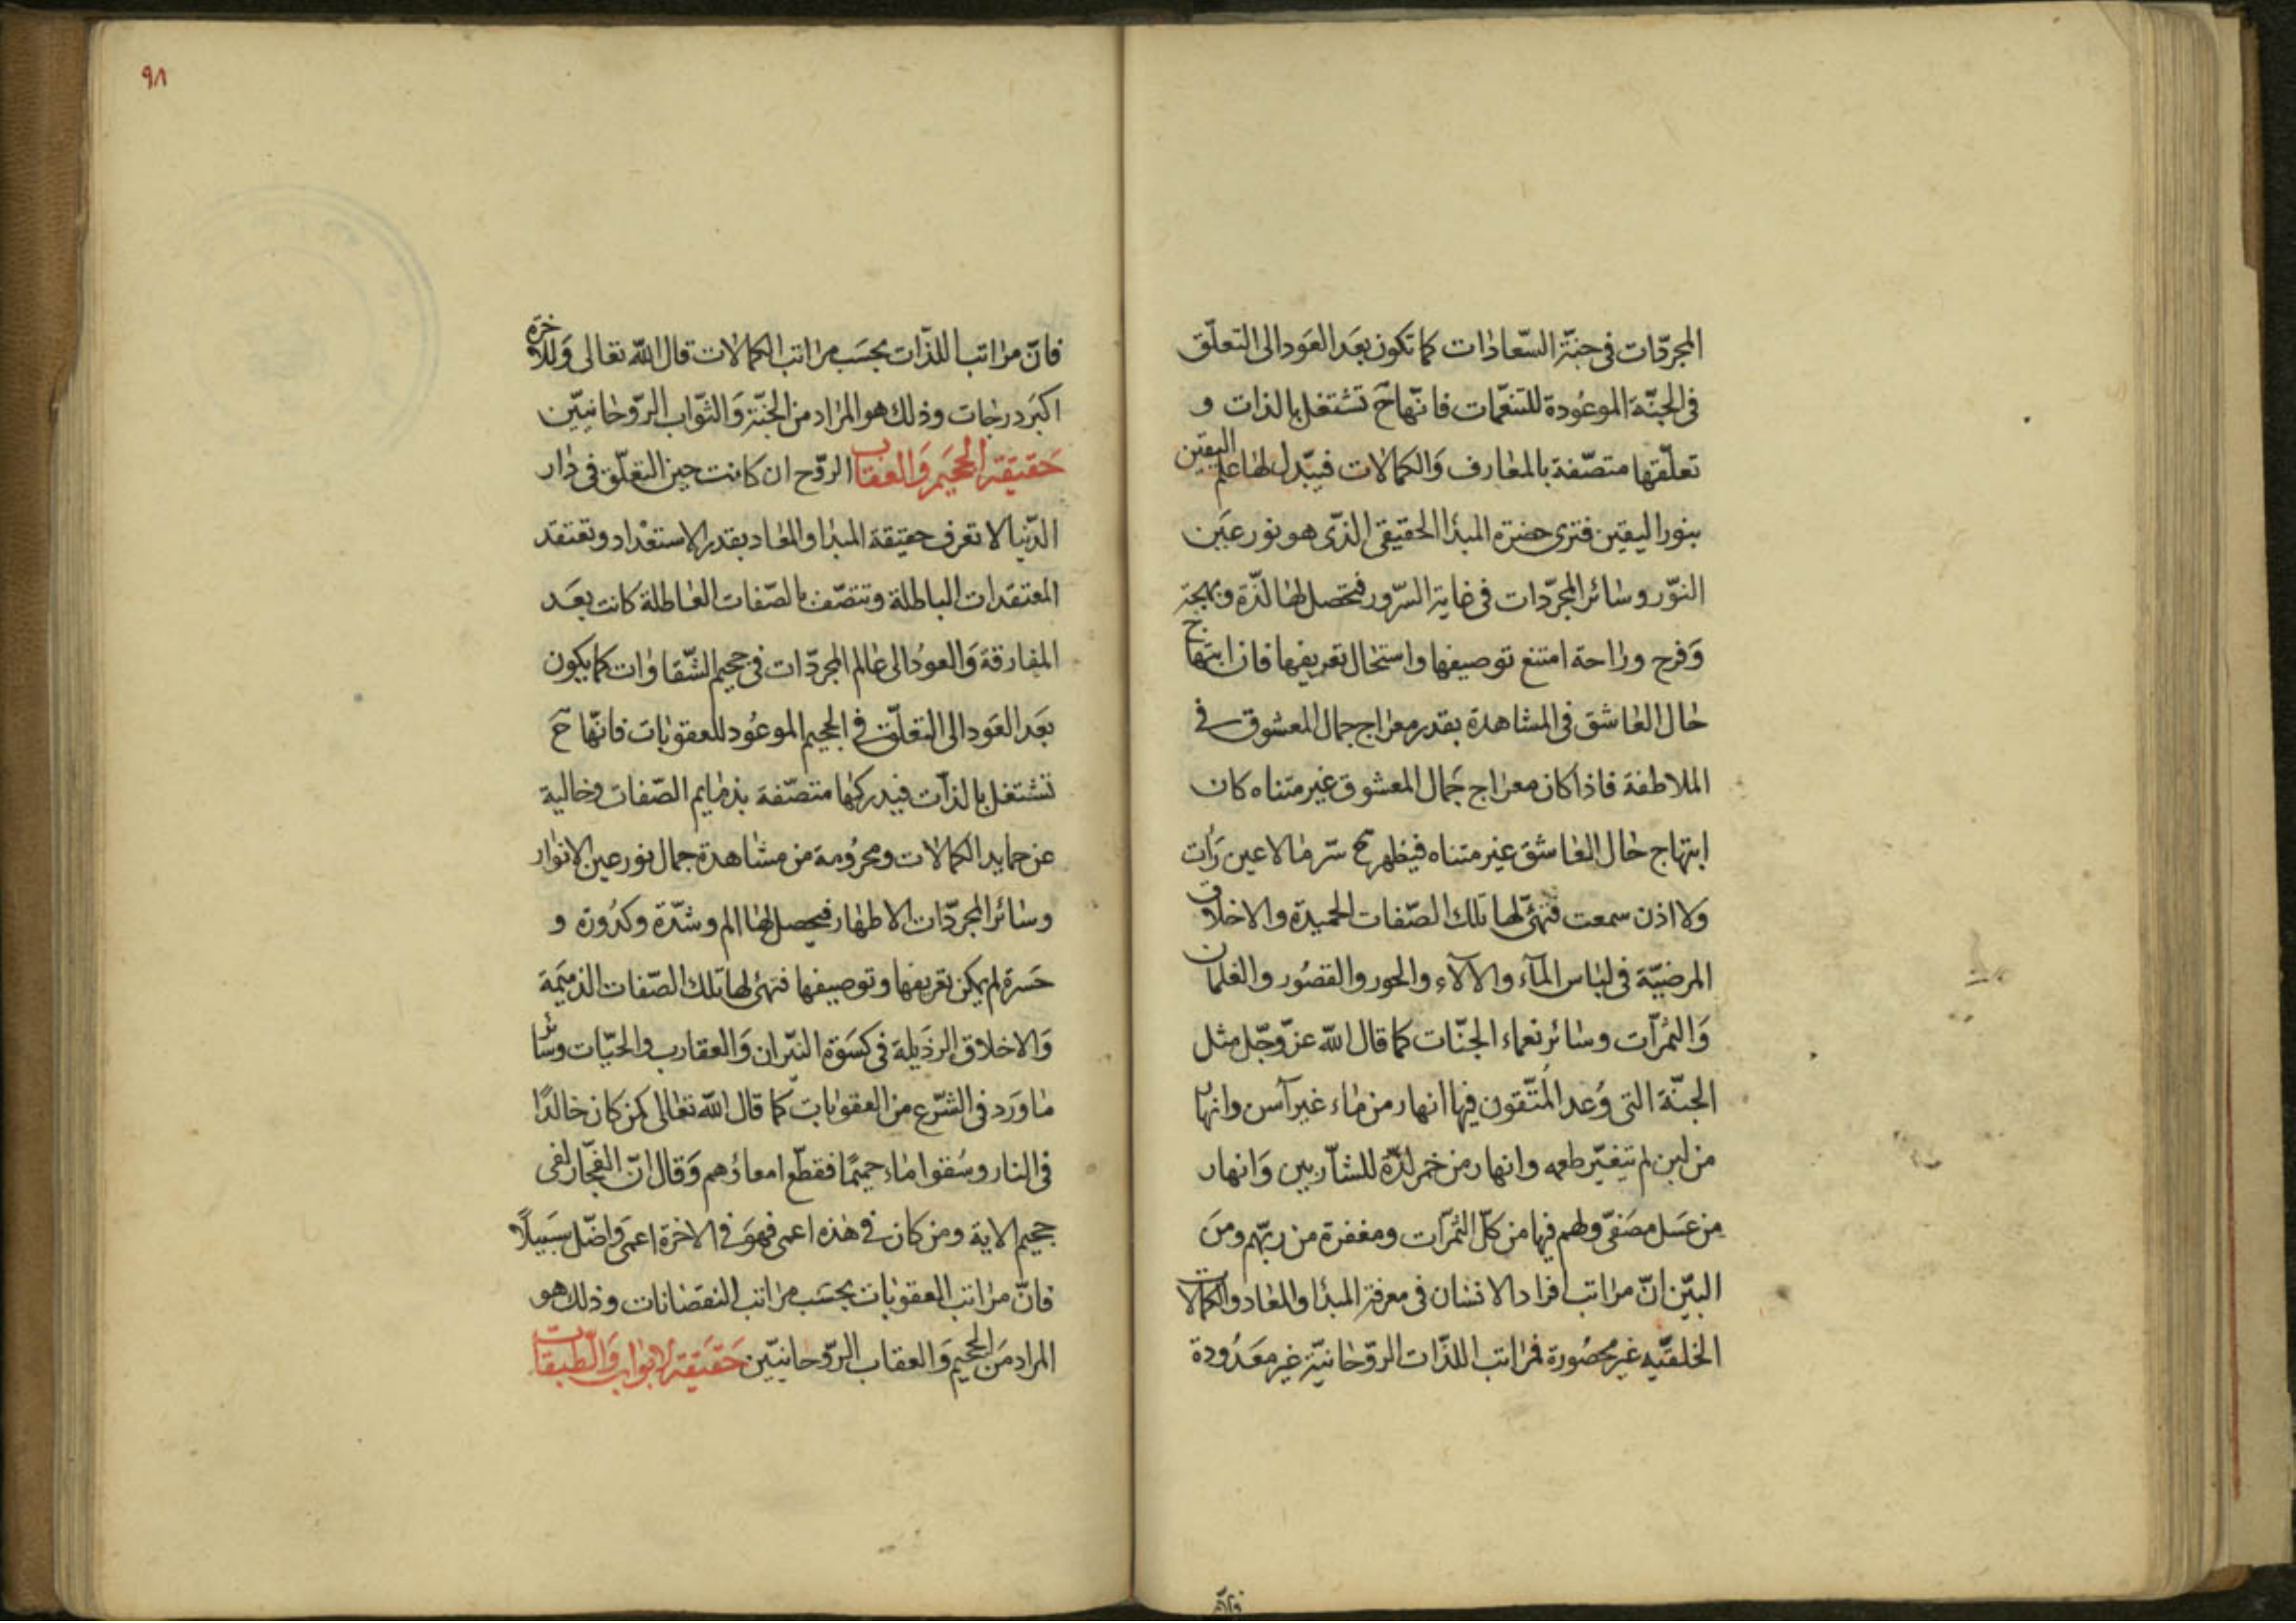 المجرّدات فى جنّة السّعادات كما تكون بعَد العَود الى التعلّق
فى الجنّة الموعُودة للتنعّمات فانّهاحَ تشتغل بالذات و
تعلّقها متصّفة بالمعارف وَالكمالات فيبّدل لها علم اليقين
بنور اليقين فترى حضرة المبدا الحقيقى الذّى هو نور عَين
النوّر وسائر المجرّدات فى غاية السّرور فتحصل لها لذّة وبهجة
وَفرح وراحة امتنع توصيفها واستحال تعريفها فان ابتهاج
حال العاشق فى المشاهدة بقدر معراج جمال المعشوق فى
الملاطفة فاذا كان معراج جَمال المعشوق غير متناه كان
ابتهاج حال العاشق غير متناه فيظهرح سّر ما لاعين رَات
ولا اذن سمعت فتهئّ لها تلك الصّفات الحميدة والاخلاق
المرضيّة فى لباس المآء والآلاء والحور والقصُور والغلمان
وَالثمرآت وسائر نعماء الجنّات كما قال الله عزّ وجّل مثل
الجنّة التى وُعد المُتّقون فيها انهار من ماء غير آسن وانهار
من لبن لم يتغيّر طعمه وانهار من خمر لذّة للشآربين وَانهار
من عسَل مصَفّى ولهم فيها من كلّ الثمرآت ومغفرة من ربّهم ومنَ
البيّن انّ مراتب افراد الانسان فى معرفة المبدا والمعاد والكمالات
الخلقيّه غير محصُورة فمراتب اللذّات الرّوحانيّة غير معَدُودة
فانّه
٩٨
فانّ مراتب اللذّات بحسَب مراتب الكمالات قال الله تعالى وَللاخرة
اكبَر درجات وذلك هو المراد من الجنّة وَالثوّاب الرّوحانيّين
حَقيقة الجحيَم وَالعقاب الروّح ان كانت حين التعلّق فى دار
الدّنيا لا تعرف حقيقة المبدا والمعاد بقدر الاستعْداد وتعتقد
المعتقدات الباطلة وتتصّف بالصّفات العاطلة كانت بعَد
المفارقة وَالعودُ الى عالم المجرّدات فى جحيم الشّقاوات كما يكون
بعَد العَود الى التعلّق فى الجحيم الموعُود للعقوبات فانّهاحَ
تشتغل بالذآت فيدركها متصّفة بذمايم الصّفات وخالية
عن حمايد الكمالات ومحرُومة من مشاهدة جمال نور عين الانوار
وسائر المجرّدات الاطهار فيحصل لها الم وشدّة وكدُورة و
حَسرة لم يمكن تعريفها وتوصيفها فتهئ لها تلك الصّفات الذميَمة
وَالاخلاق الرذَيلة فى كسَوة النيّران وَالعقارب والحيّات وسائر
ما ورَد فى الشّرع من العقوبات كما قال الله تعالى كمن كان خالدًا
فى النار وسُقوا ماء حميمًا فقطّع امعاءُهم وَقال انّ الفجّار لفى
جحيم الاية ومن كان فى هذه اعمى فهوَ فى الاخرة اعمَى وَاضّل سَبيلًا
فانّ مراتب العقوبات بحسَب مراتب النقصانات وذلك هو
المراد منَ الجحيم وَالعقاب الرّوحانيّين حَقيَقة الابواب وَالطّبقات